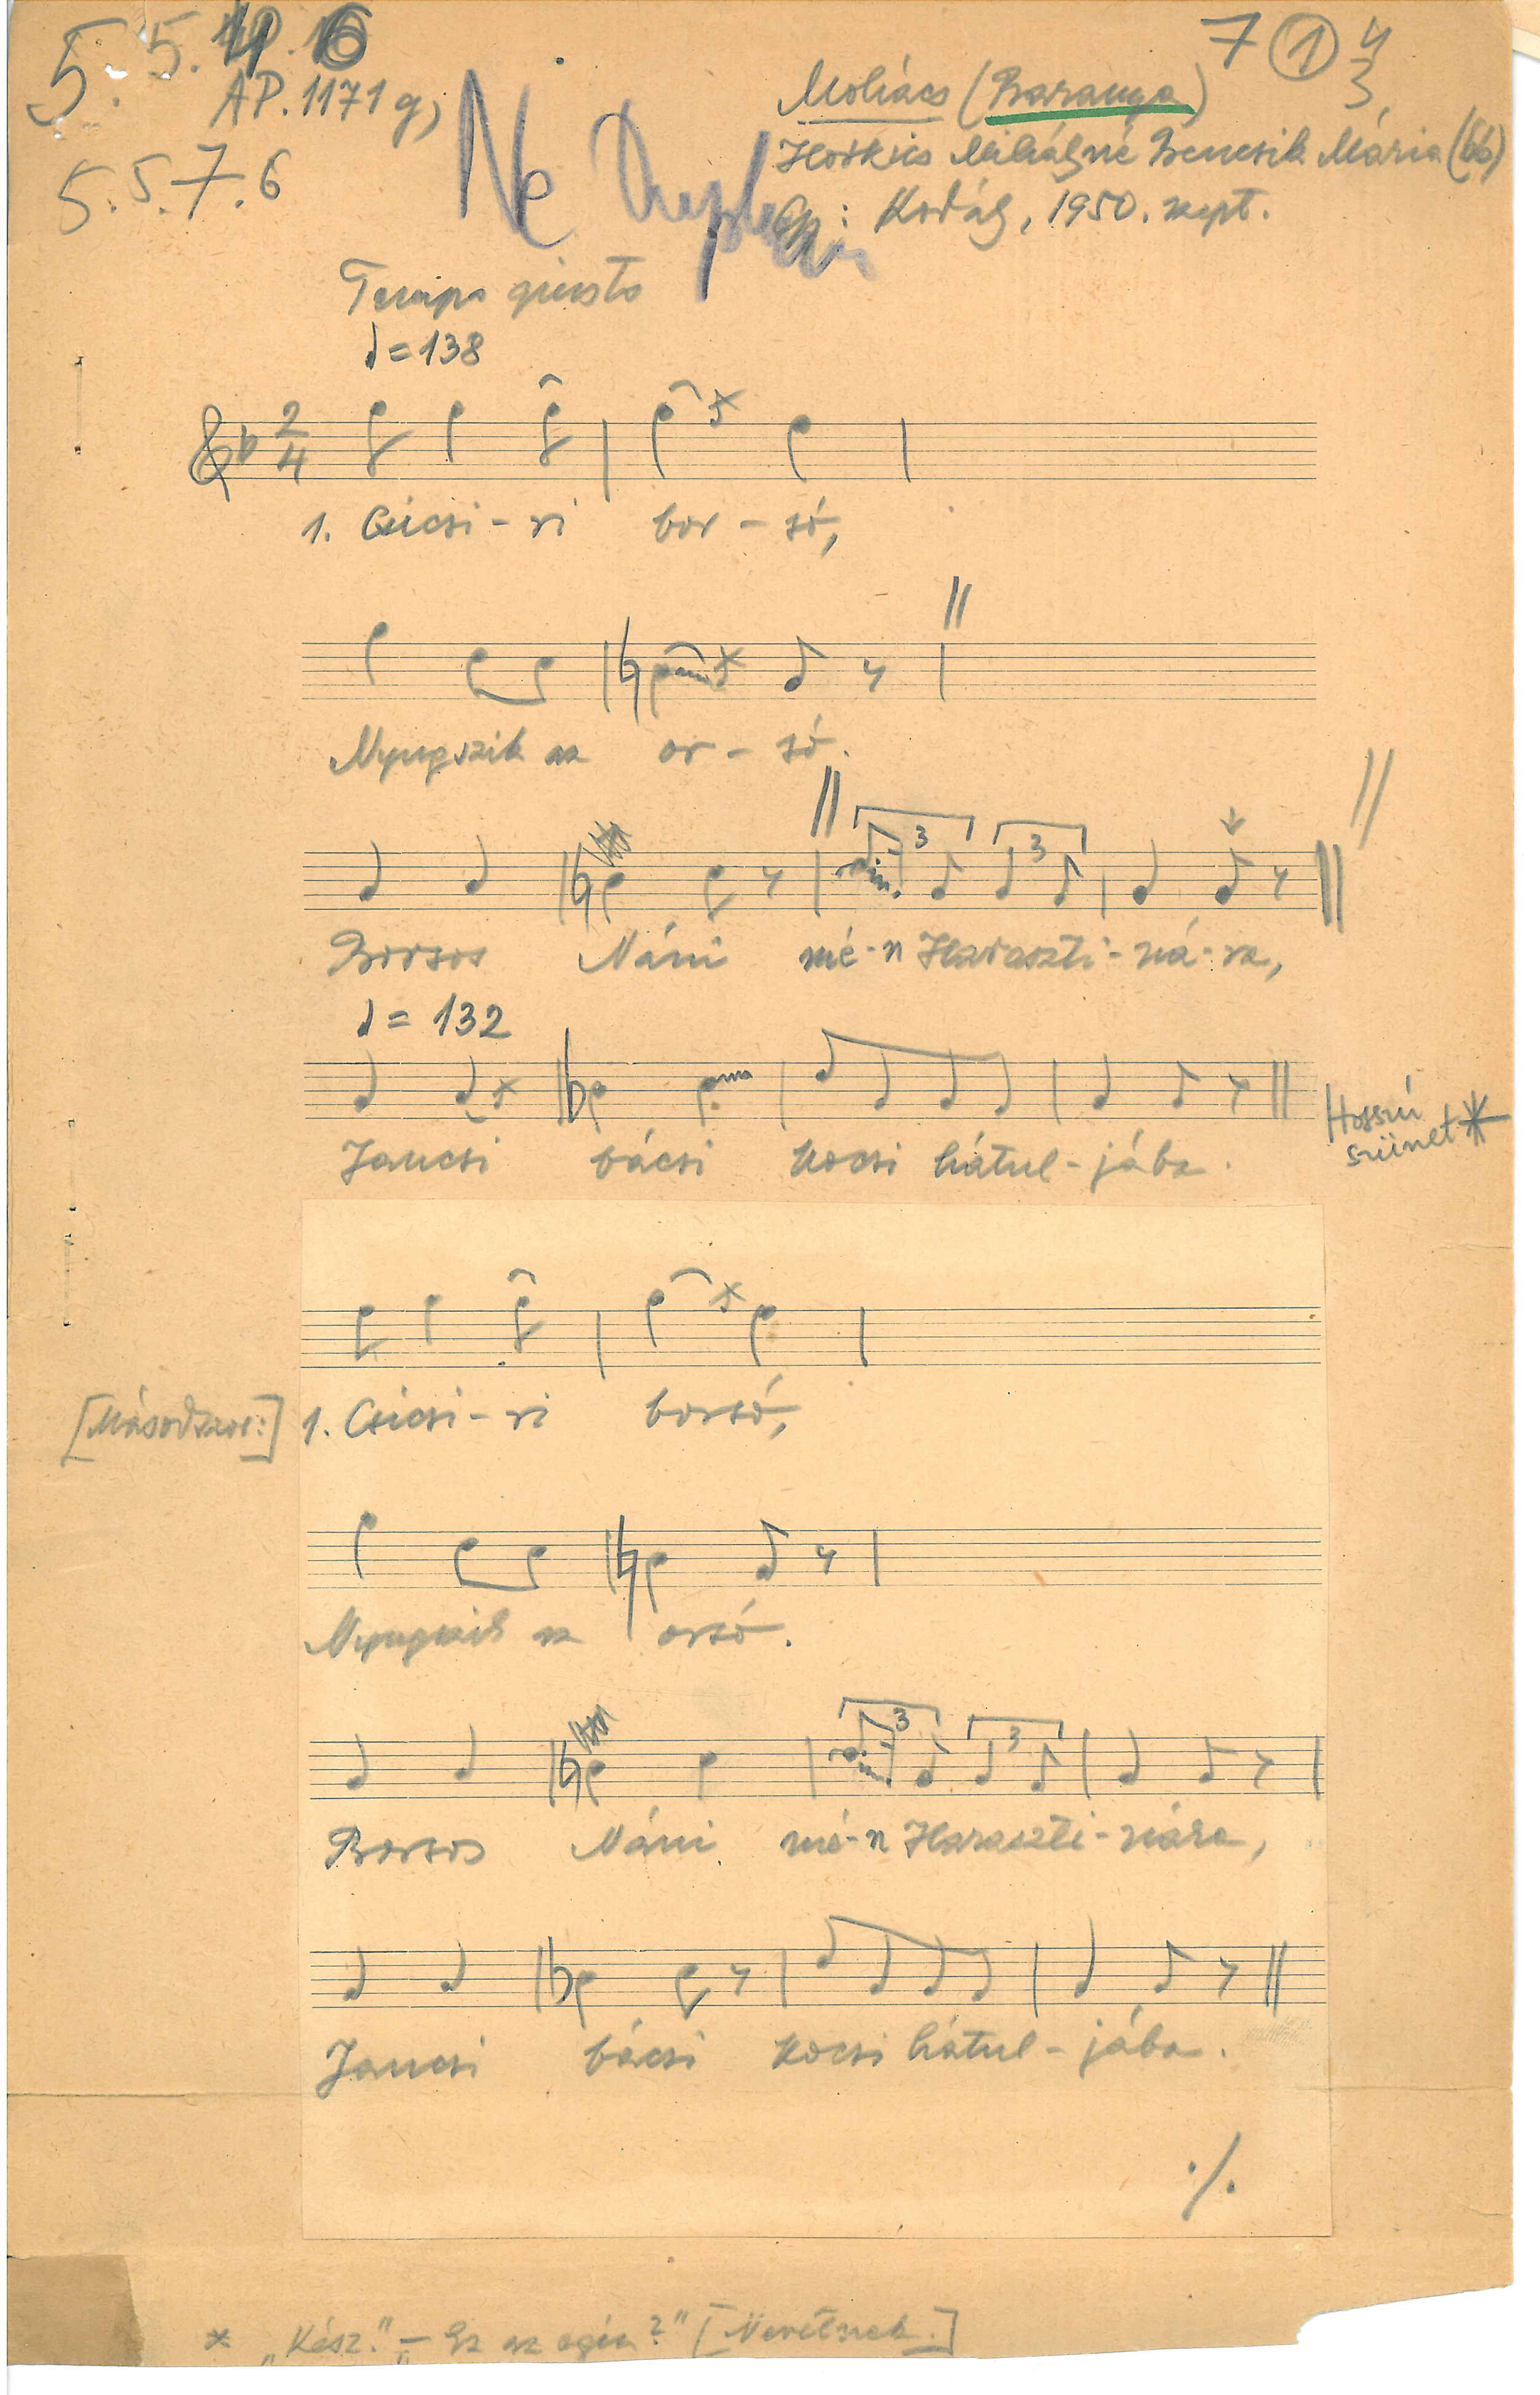 5. 5. 10. 6
AP. 1171 g)
5. 5. 7. 6
7 ① 4
3
Mohács (Baranya)
Mihályné Bencsik Mária (66)
Gy: Kodály, 1950. szept.
Ne
Tempo giusto
♩ = 138
2/4
1. Cicsi - ri bor - só,
Nyugszik az or - só.
3 3
Borsos Náni mé - n Haraszti - ná - ra,
♩ = 132
Jancsi bácsi kocsi hátul - jába.
Hosszú
szünet *
[Másodszor:] 1. Cicsi - ri borsó,
Nyugszik az orsó.
3 3
Borsos Náni mé - n Haraszti - nára,
Jancsi bácsi kocsi hátul - jába.
./.
* „Kész.” – „Ez az egész?” [Nevetnek.]